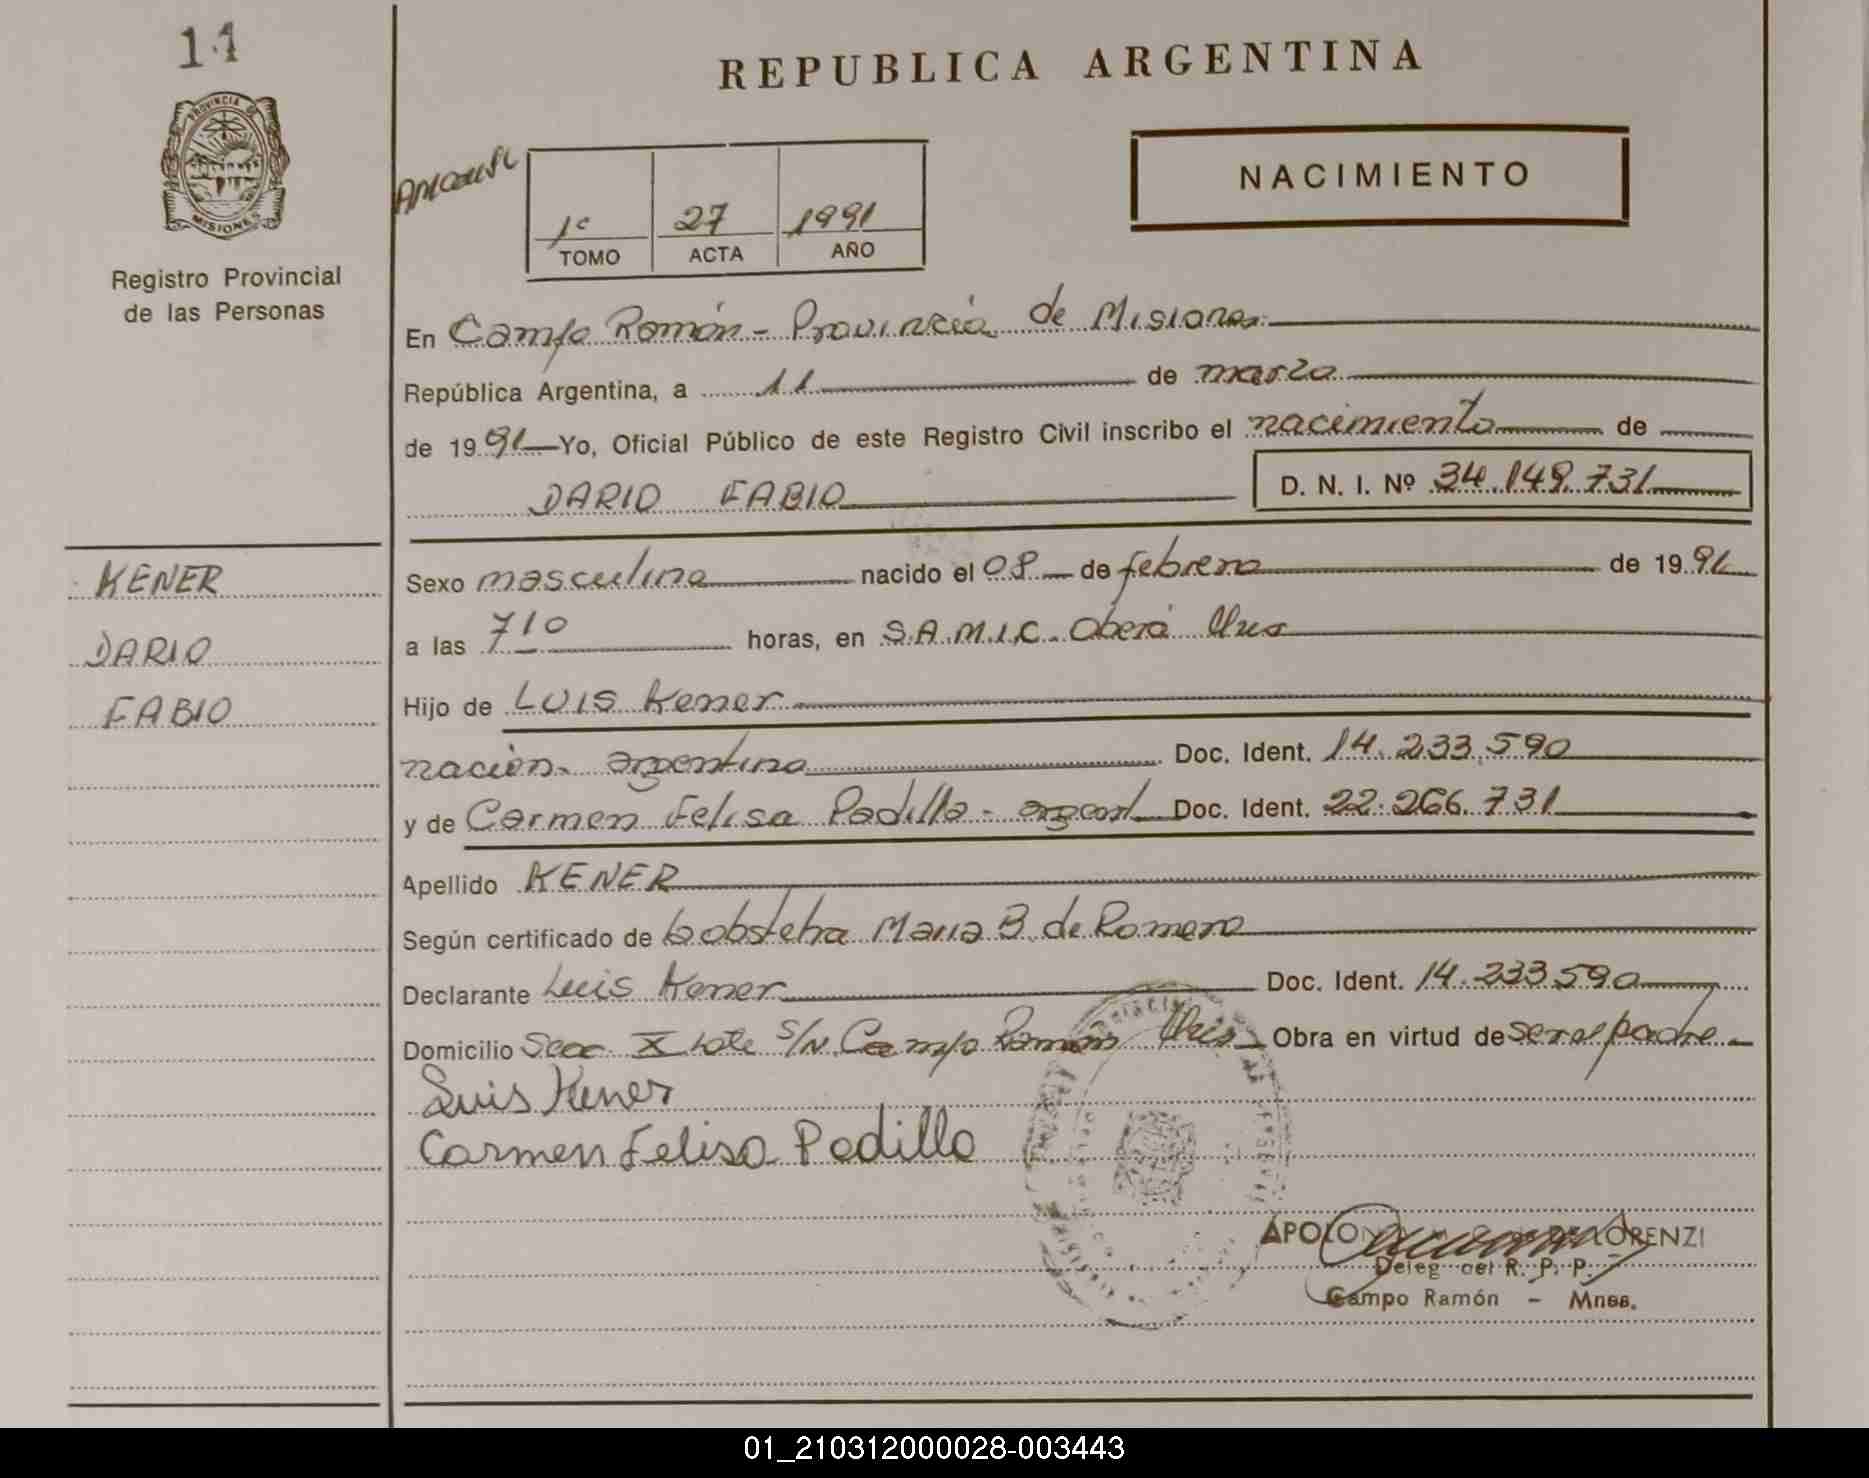 11
REPUBLICA ARGENTINA
PROVINCIA DE
MISIONES
NACIMIENTO
1º 27 1991
TOMO ACTA AÑO
Registro Provincial
de las Personas
En Campo Ramón - Provincia de Misiones
República Argentina, a 11 de marzo
de 1991 Yo, Oficial Público de este Registro Civil inscribo el nacimiento de
DARIO FABIO D. N. I. Nº 34.149.731
KENER
DARIO
FABIO
Sexo masculino nacido el 08 de febrero de 1991
a las 710 horas, en S.A.M.I.C. Oberá Mnes
Hijo de LUIS Kener
nación. argentina Doc. Ident. 14.233.590
y de Carmen Felisa Padilla - argent Doc. Ident. 22.266.731
Apellido KENER
Según certificado de la obstetra Maria B. de Romero
Declarante Luis Kener Doc. Ident. 14.233.590
Domicilio Secc X Lote S/N Campo Ramón Mnes Obra en virtud de ser el padre
Luis Kener
Carmen Felisa Padilla
LORENZI
Deleg del R. P. P.
Campo Ramón - Mnes.
01_210312000028-003443